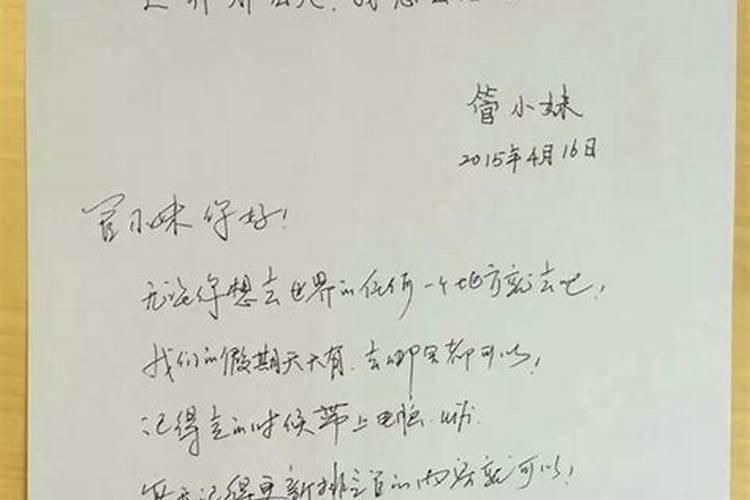 管小妹
2015年4月16日
管小妹你好！
无论你想去世界的任何一个地方就去吧！
我们的假期天天有.去哪里都可以！
记得走的时候带上电脑.wifi.
每天记得更新的内容就可以！